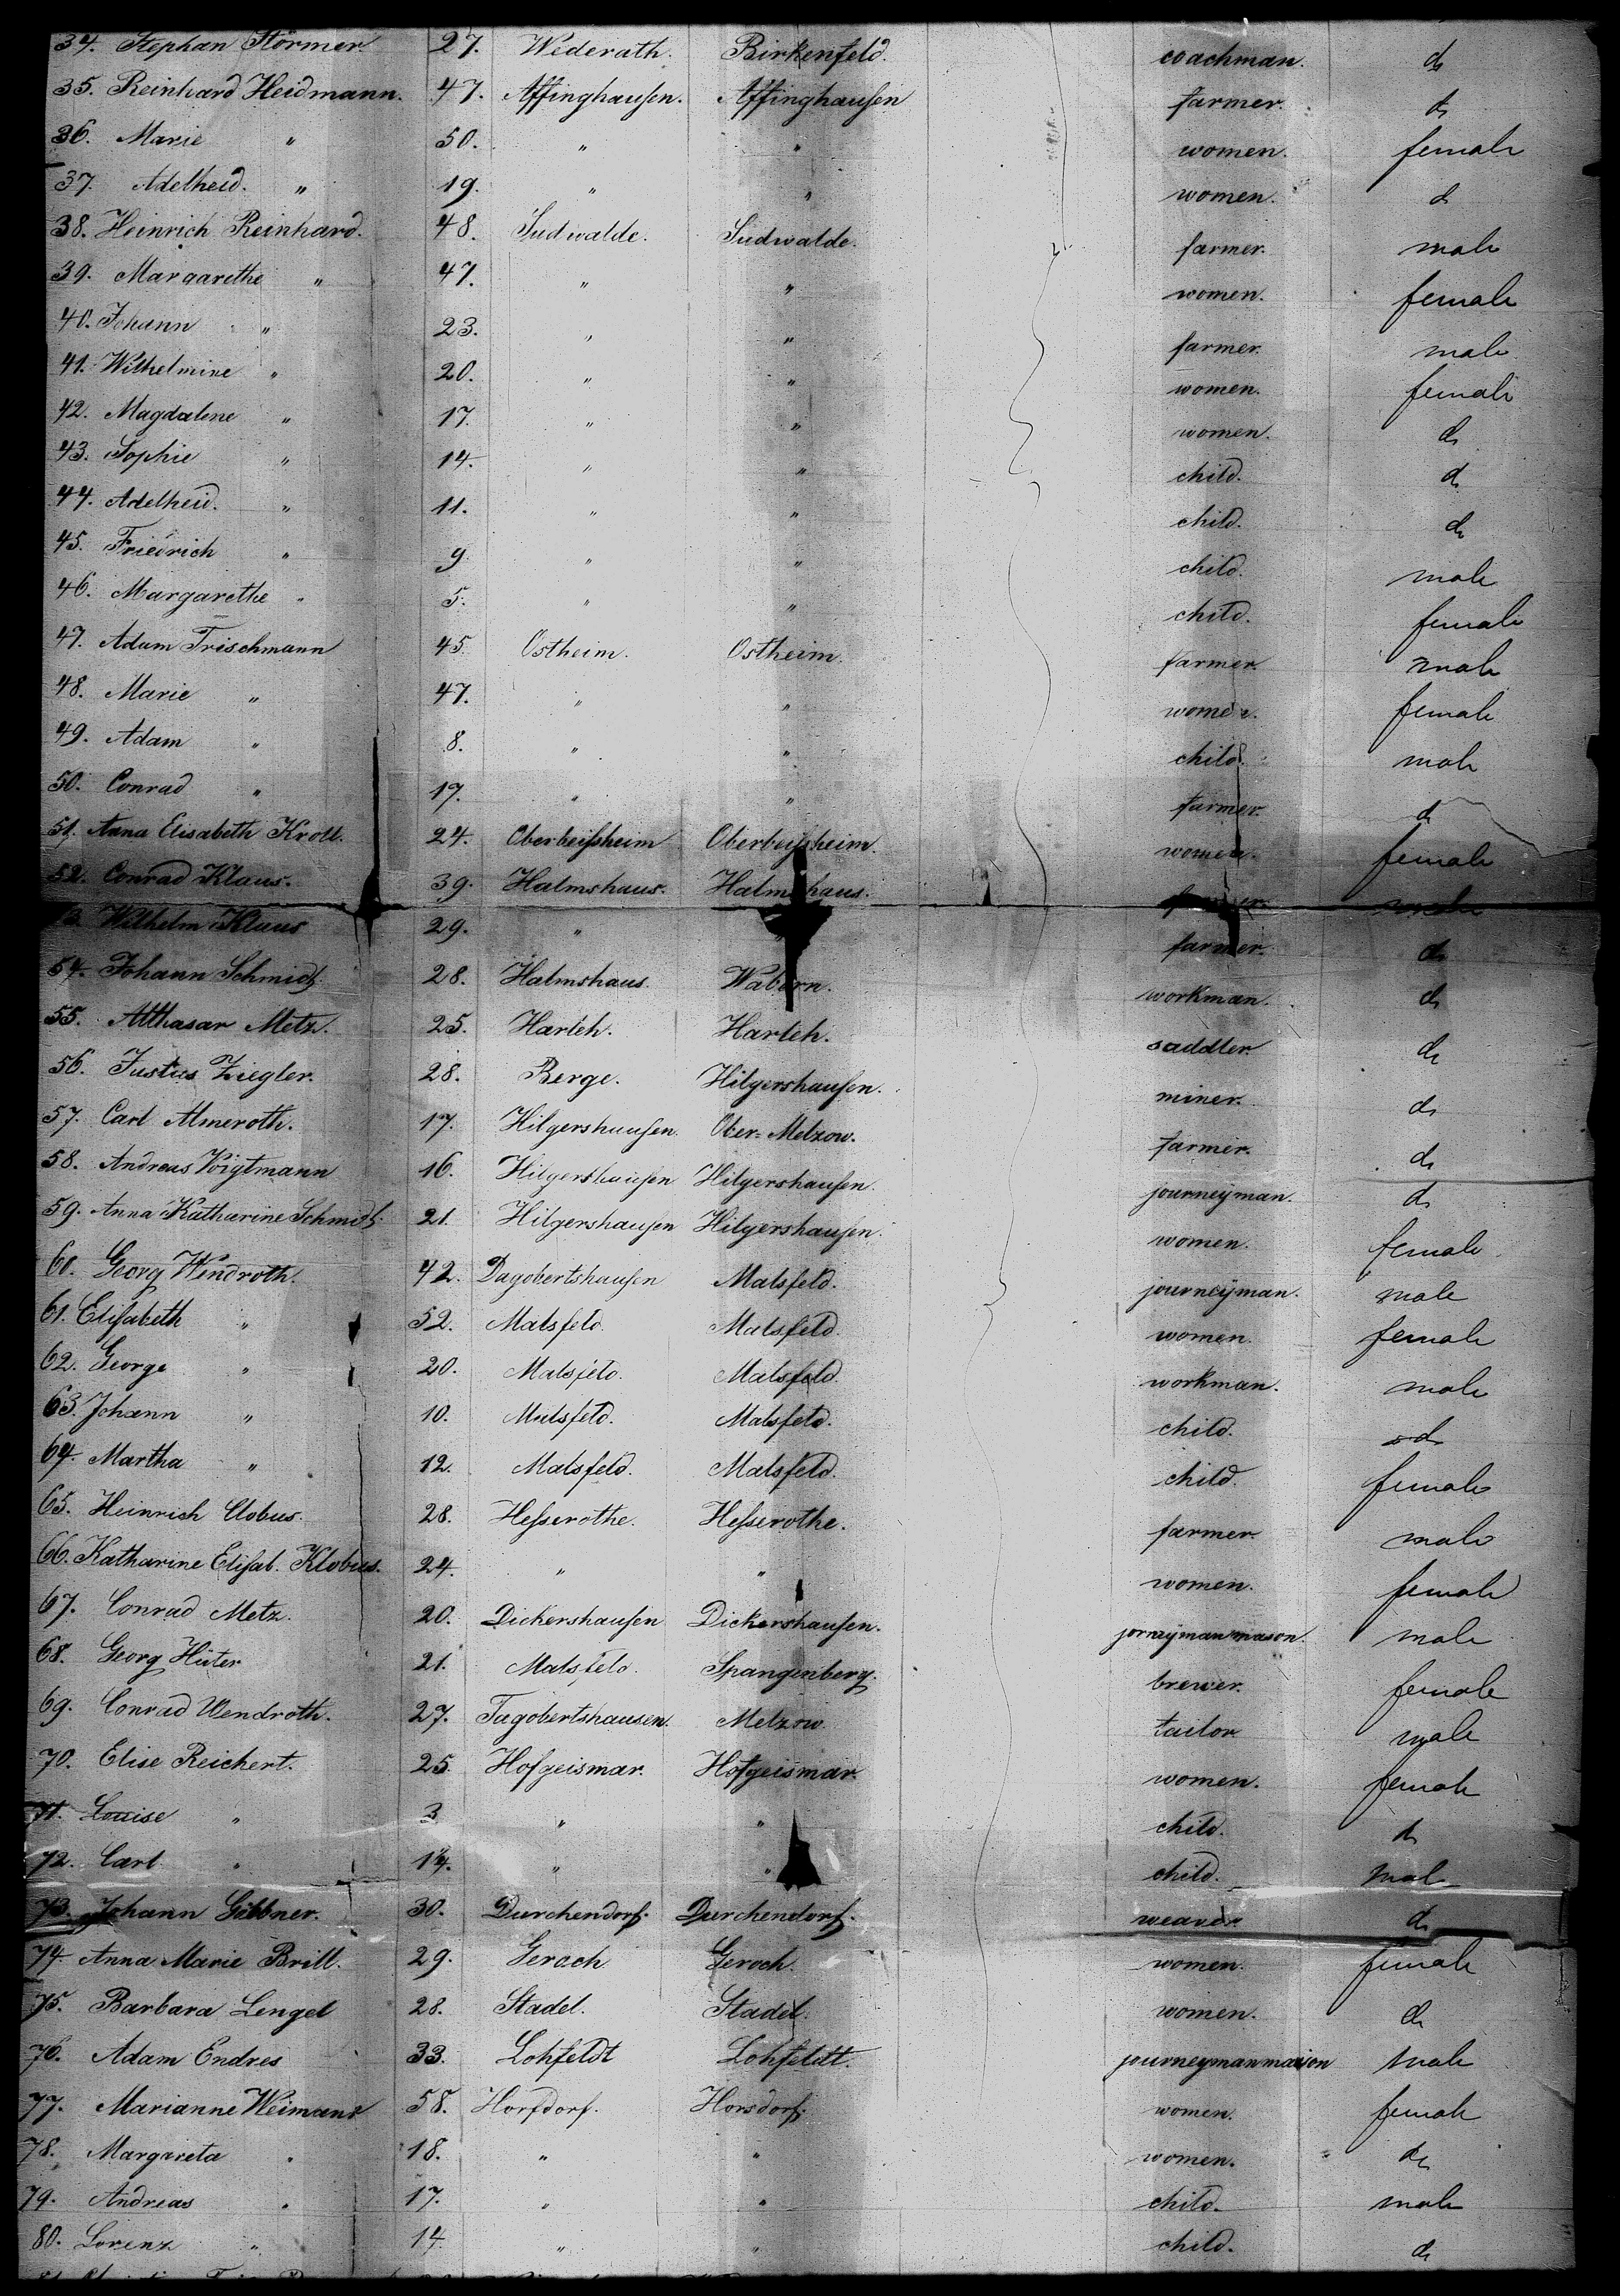 34. Stephan Störmer 27. Wederath. Birkenfeld. coachman. do
35. Reinhard Heidmann. 47. Affinghausen. Affinghausen farmer. do
36. Marie " 50. " " women. female
37. Adelheid. " 19. " " women. do
38. Heinrich Reinhard. 48. Sudwalde. Sudwalde. farmer. male
39. Margarethe " 47. " " women. female
40. Johann " 23. " " farmer. male
41. Wilhelmine " 20. " " women. female
42. Magdalene " 17. " " women. do
43. Sophie " 14. " " child. do
44. Adelheid. " 11. " " child. do
45. Friedrich " 9. " " child. male
46. Margarethe " 5. " " child. female
47. Adam Trischmann 45. Ostheim. Ostheim. farmer. male
48. Marie " 47. " " women. female
49. Adam " 8. " " child. male
50. Conrad " 17. " " farmer. do
51. Anna Elisabeth Kroll. 24. Oberbeißheim Oberbeißheim. women. female
52. Conrad Klaus. 39. Halmshaus. Halmshaus. farmer. male
53. Wilhelm Klaus 29. " " farmer. do
54. Johann Schmidt. 28. Halmshaus. Wabern. workman. do
55. Althasar Metz. 25. Harleh. Harleh. saddler. do
56. Justus Ziegler. 28. Berge. Hilgershausen. miner. do
57. Carl Almeroth. 17. Hilgershausen. Ober-Melzow. farmer. do
58. Andreas Voigtmann 16. Hilgershausen Hilgershausen. journeyman. do
59. Anna Katharine Schmidt. 21. Hilgershausen Hilgershausen. women. female
60. Georg Wendroth. 42. Dagobertshausen Malsfeld. journeyman. male
61. Elisabeth " 52. Malsfeld. Malsfeld. women. female
62. George " 20. Malsfeld. Malsfeld. workman. male
63. Johann " 10. Malsfeld. Malsfeld. child. do
64. Martha " 12. Malsfeld. Malsfeld. child. female
65. Heinrich Clobus. 28. Hesserothe. Hesserothe. farmer. male
66. Katharine Elisab. Klobus. 24. " " women. female
67. Conrad Metz. 20. Dickershausen Dickershausen. jorneyman mason. male
68. Georg Hüter 21. Malsfeld. Spangenberg. brewer. female
69. Conrad Wendroth. 27. Tagobertshausen. Melzow. tailor male
70. Elise Reichert. 25. Hofgeismar. Hofgeismar. women. female
71. Louise " 3 " " child. do
72. Carl " 14. " " child. Male
73. Johann Gübbner. 30. Durchendorf. Durchendorf. weaver. do
74. Anna Marie Brill. 29. Geroch Geroch. women. female
75. Barbara Lengel 28. Stadel. Stadel. women. do
76. Adam Endres 33. Lohfeldt Lohfeldt. journeyman mason male
77. Marianne Weimans 58. Horsdorf. Horsdorf. women. female
78. Margareta " 18. " " women. do
79. Andreas " 17. " " child. male
80. Lorenz " 14. " " child. do